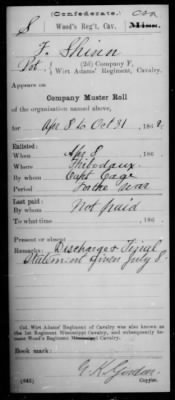 (Confederate.)
S Wood's Reg't, Cav. Miss.
F. Shinn
Pvt., (2d) Company F,
Wirt Adams' Regiment, Cavalry.
Appears on
Company Muster Roll
of the organization named above,
for Apr 8 to Oct 31, 1862.
Enlisted:
When Apr 8, 186 .
Where Thibodaux
By whom Capt Cage
Period For the war
Last paid:
By whom Not paid
To what time , 186 .
Present or absent
Remarks: Discharged Final
Statement given July 8
Col. Wirt Adams' Regiment of Cavalry was also known as
the 1st Regiment Mississippi Cavalry, and subsequently be-
came Wood's Regiment Mississippi Cavalry.
Book mark:
G. K. Gordon
(642) Copyist.